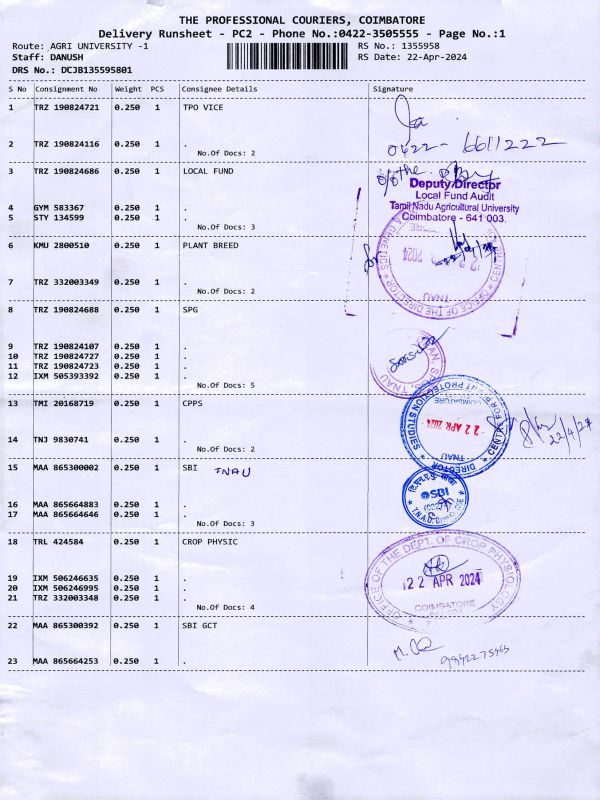 THE PROFESSIONAL COURIERS, COIMBATORE
Delivery Runsheet - PC2 - Phone No.:0422-3505555 - Page No.:1
Route: AGRI UNIVERSITY -1 RS No.: 1355958
Staff: DANUSH RS Date: 22-Apr-2024
DRS No.: DCJB135595801
S No Consignment No Weight PCS Consignee Details Signature
1 TRZ 190824721 0.250 1 TPO VICE
2 TRZ 190824116 0.250 1 .
0422- 6611222
No.Of Docs: 2
3 TRZ 190824686 0.250 1 LOCAL FUND
o/o the
Deputy Director
Local Fund Audit
Tamil Nadu Agricultural University
Coimbatore - 641 003.
4 GYM 583367 0.250 1 .
5 STY 134599 0.250 1 .
No.Of Docs: 3
6 KMU 2800510 0.250 1 PLANT BREED
for
OFFICE OF THE DIRECTOR
& GENETICS
TNAU
2024
7 TRZ 332003349 0.250 1 .
No.Of Docs: 2
8 TRZ 190824688 0.250 1 SPG
9 TRZ 190824107 0.250 1 .
10 TRZ 190824727 0.250 1 .
11 TRZ 190824723 0.250 1 .
12 IXM 505393392 0.250 1 .
TNAU
No.Of Docs: 5
13 TMI 20168719 0.250 1 CPPS
DIRECTOR
CENTRE FOR PLANT PROTECTION STUDIES
COIMBATORE
22 APR 2024
TNAU
22/4/24
14 TNJ 9830741 0.250 1 .
No.Of Docs: 2
15 MAA 865300002 0.250 1 SBI TNAU
SBI
16 MAA 865664883 0.250 1 .
17 MAA 865664646 0.250 1 .
No.Of Docs: 3
18 TRL 424584 0.250 1 CROP PHYSIC
OFFICE OF THE DEPT. OF CROP PHYSIOLOGY
22 APR 2024
COIMBATORE
19 IXM 506246635 0.250 1 .
20 IXM 506246995 0.250 1 .
21 TRZ 332003348 0.250 1 .
No.Of Docs: 4
22 MAA 865300392 0.250 1 SBI GCT
23 MAA 865664253 0.250 1 .